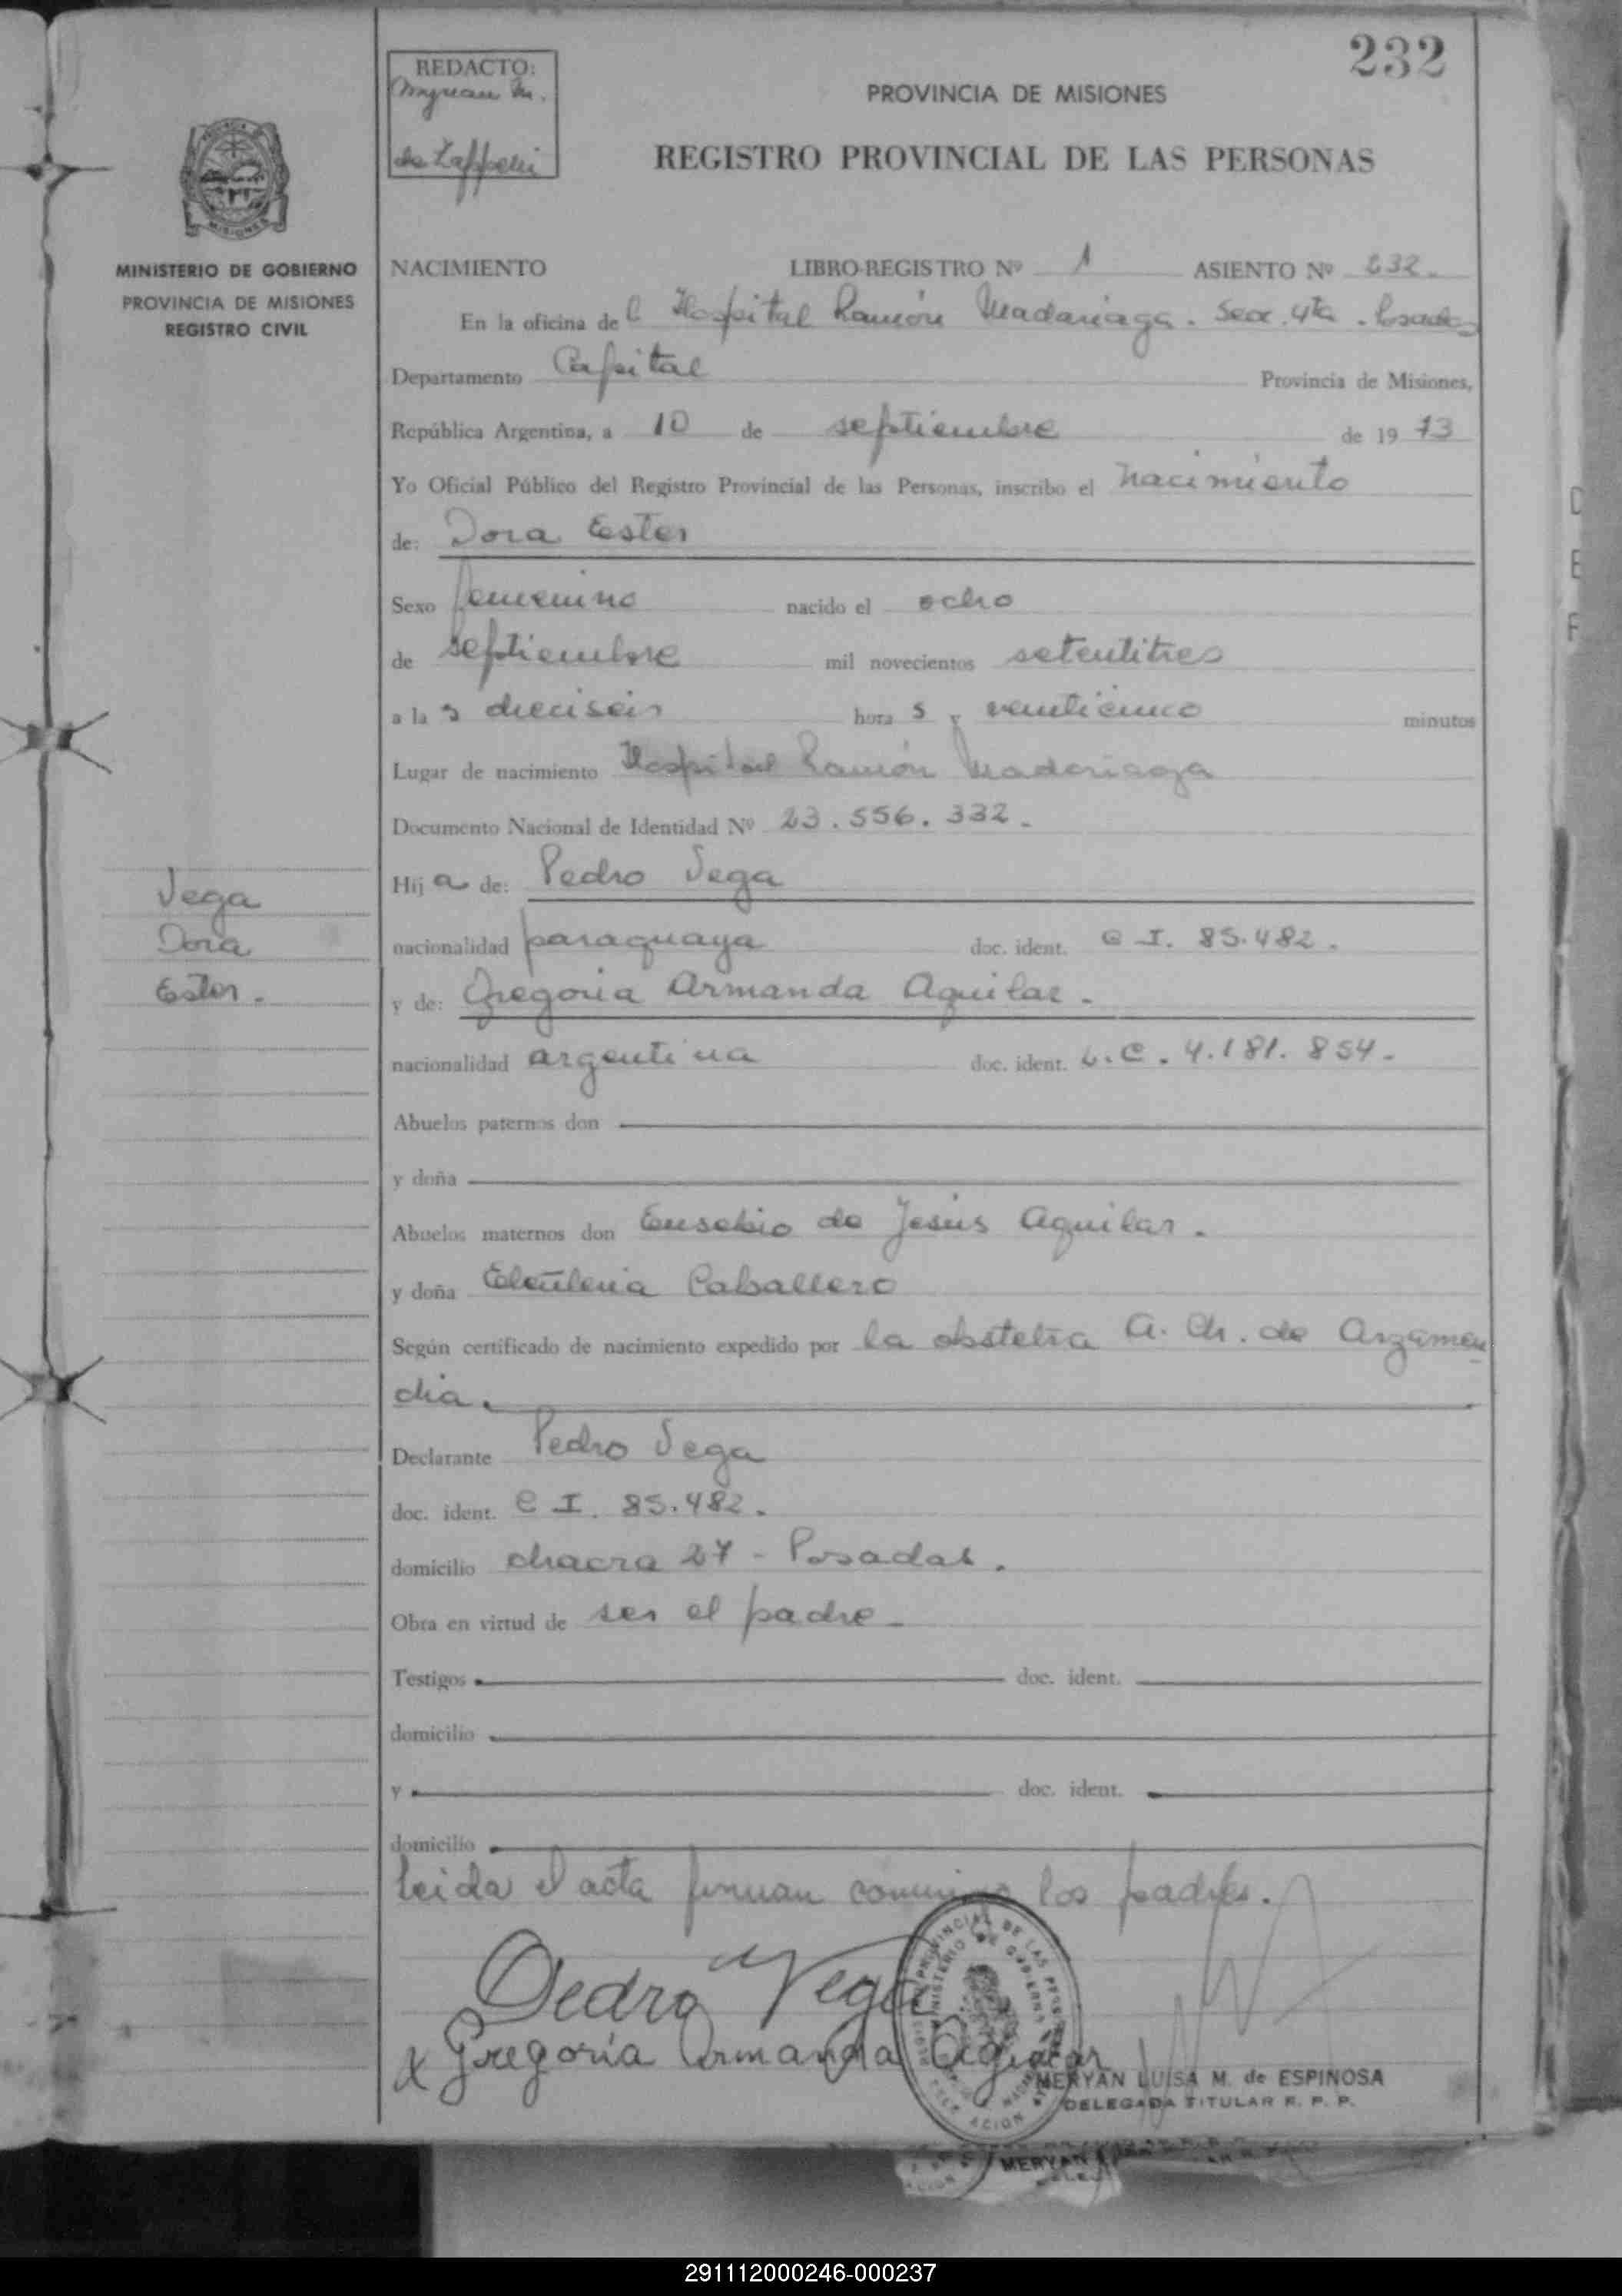 232
REDACTO:
Myrian M.
de Zappelli
PROVINCIA DE MISIONES
REGISTRO PROVINCIAL DE LAS PERSONAS
MINISTERIO DE GOBIERNO
PROVINCIA DE MISIONES
REGISTRO CIVIL
NACIMIENTO LIBRO-REGISTRO Nº 1 ASIENTO Nº 232.
En la oficina del Hospital Ramón Madariaga. Secc. 4ta. Posadas
Departamento Capital Provincia de Misiones,
República Argentina, a 10 de septiembre de 1973
Yo Oficial Público del Registro Provincial de las Personas, inscribo el nacimiento
de: Dora Ester
Sexo femenino nacido el ocho
de septiembre mil novecientos setentitres
a las dieciseis horas y venticinco minutos
Lugar de nacimiento Hospital Ramón Madariaga
Documento Nacional de Identidad Nº 23.556.332.
Hija de: Pedro Vega
nacionalidad paraguaya doc. ident. C I. 85.482.
y de: Gregoria Armanda Aguilar.
nacionalidad argentina doc. ident. L.C. 4.181.854.
Vega
Dora
Ester.
Abuelos paternos don
y doña
Abuelos maternos don Eusebio de Jesús Aguilar.
y doña Eleuteria Caballero
Según certificado de nacimiento expedido por la obstetra A. Ch. de Arzamen
dia.
Declarante Pedro Vega
doc. ident. C I. 85.482.
domicilio chacra 27 - Posadas.
Obra en virtud de ser el padre
Testigos doc. ident.
domicilio
y doc. ident.
domicilio
leida el acta firman conmigo los padres.
Pedro Vega
x Gregoria Armanda Aguilar
MERYAN LUISA M. de ESPINOSA
DELEGADA TITULAR R. P. P.
MERYAN
291112000246-000237